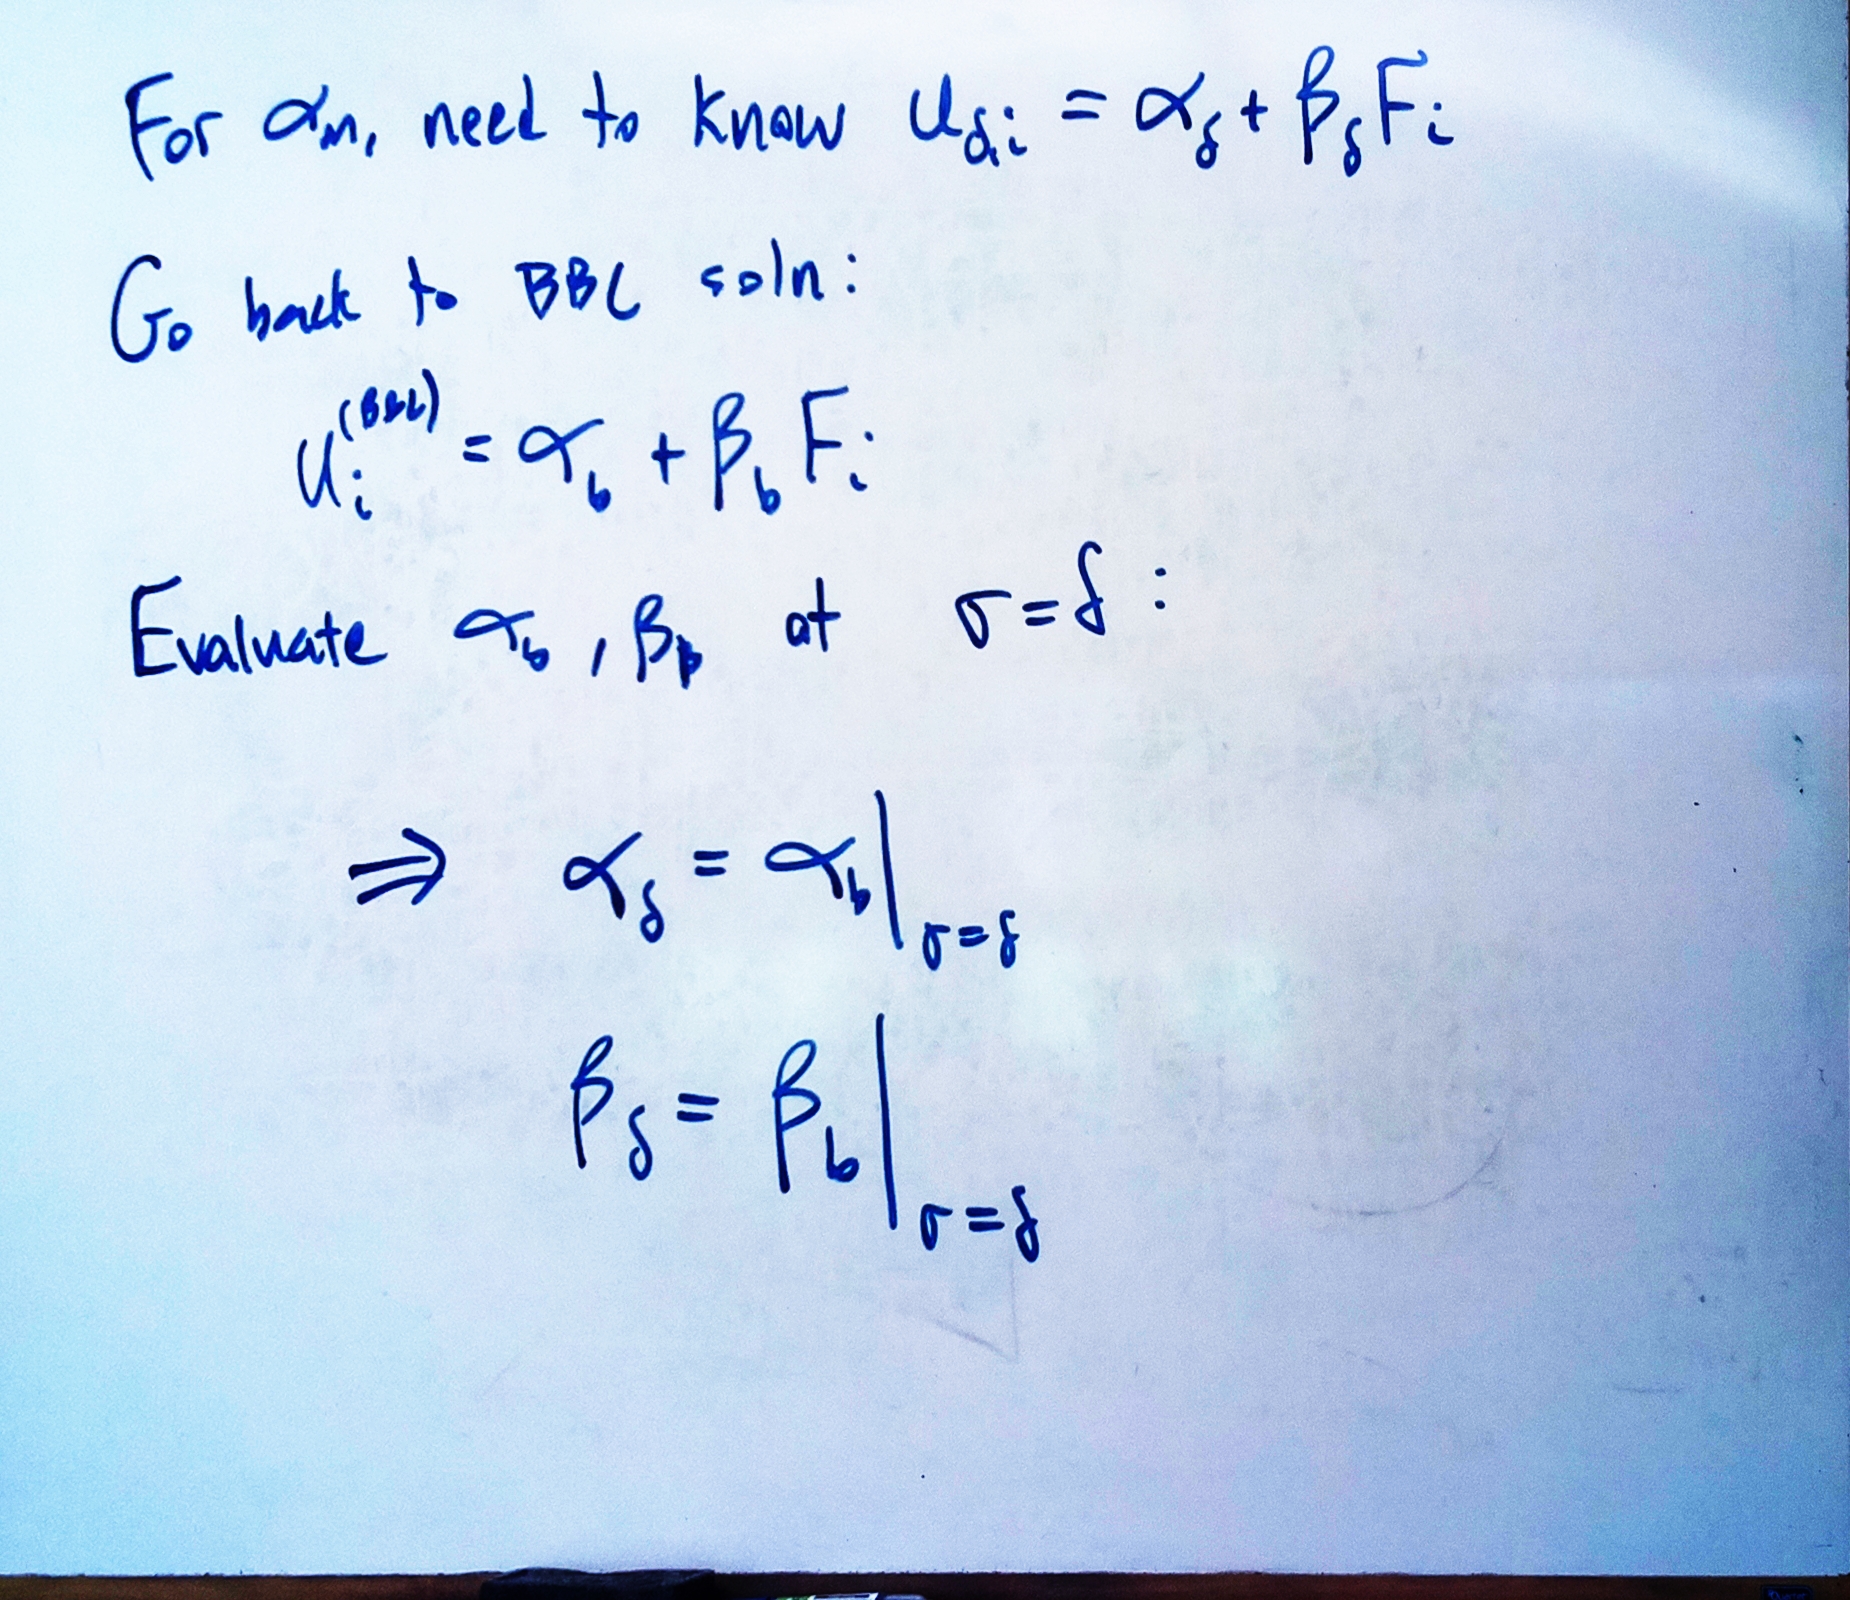 For αₘ, need to know u_{δ,i} = α_δ + β_δ F_i
Go back to BBL soln:
u_i^{(BBL)} = α_b + β_b F_i
Evaluate α_b, β_b at σ=δ:
⇒ α_δ = α_b|_{σ=δ}
β_δ = β_b|_{σ=δ}